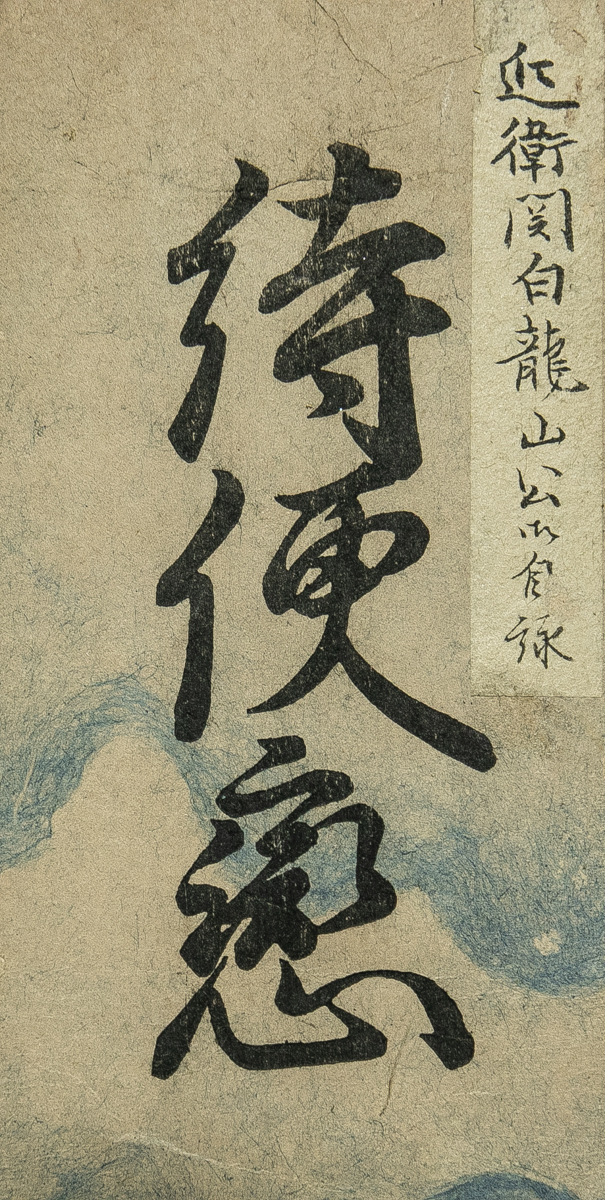 近衛関白龍山公御自詠
待便恋